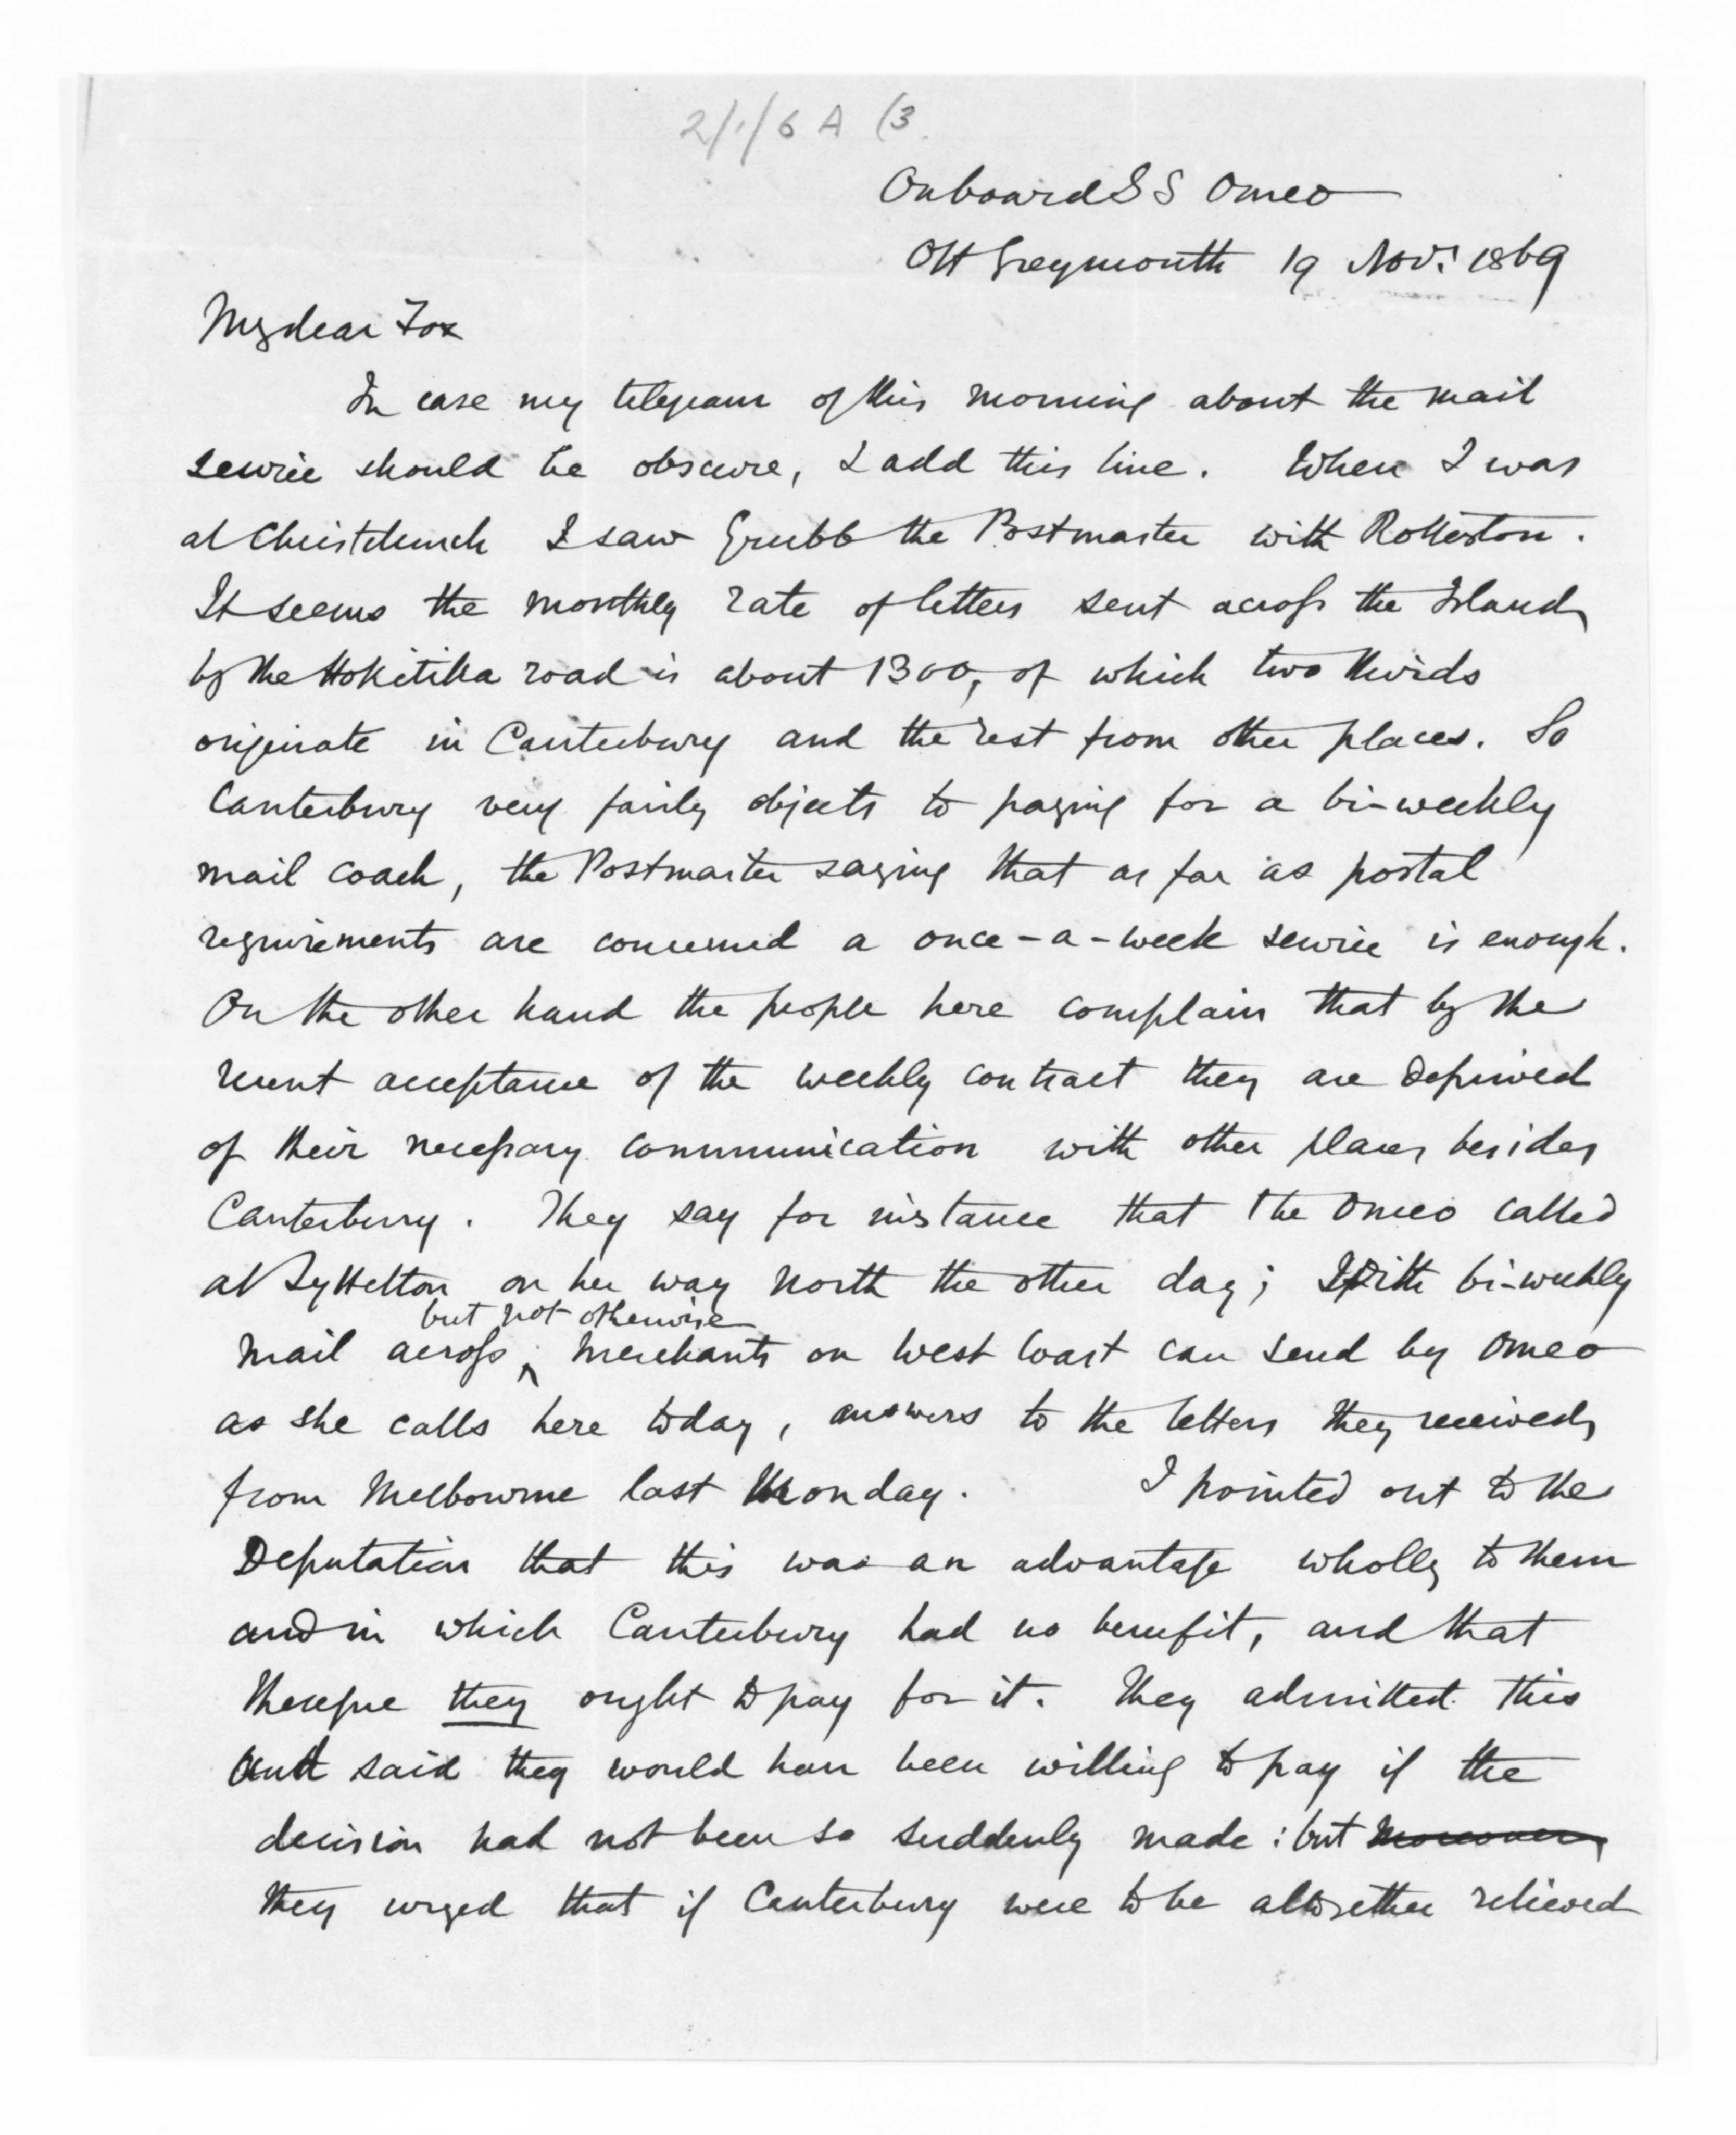 2/1/6 A (3.
On board S S Omeo
Off Greymouth 19 Nov: 1869
My dear Fox
In case my telegram of this morning about the mail
service should be obscure, I add this line. When I was
at Christchurch I saw Grubb the Postmaster with Rolleston.
It seems the monthly rate of letters sent across the Island
by the Hokitika road is about 1300, of which two thirds
originate in Canterbury and the rest from other places. So
Canterbury very fairly objects to paying for a bi-weekly
mail coach, the Postmaster saying that as far as postal
requirements are concerned a once-a-week service is enough.
On the other hand the people here complain that by the
recent acceptance of the weekly contract they are deprived
of their necessary communication with other places besides
Canterbury. They say for instance that the Omeo called
at Lyttelton on her way North the other day; With bi-weekly
but not otherwise
mail across, merchants on West Coast can send by Omeo
as she calls here today, answers to the letters they received,
from Melbourne last Monday. I pointed out to the
Deputation that this was an advantage wholly to them
and in which Canterbury had no benefit, and that
therefore they ought to pay for it. They admitted this
and said they would have been willing to pay if the
decision had not been so suddenly made: but moreover,
they urged that if Canterbury were to be altogether relieved